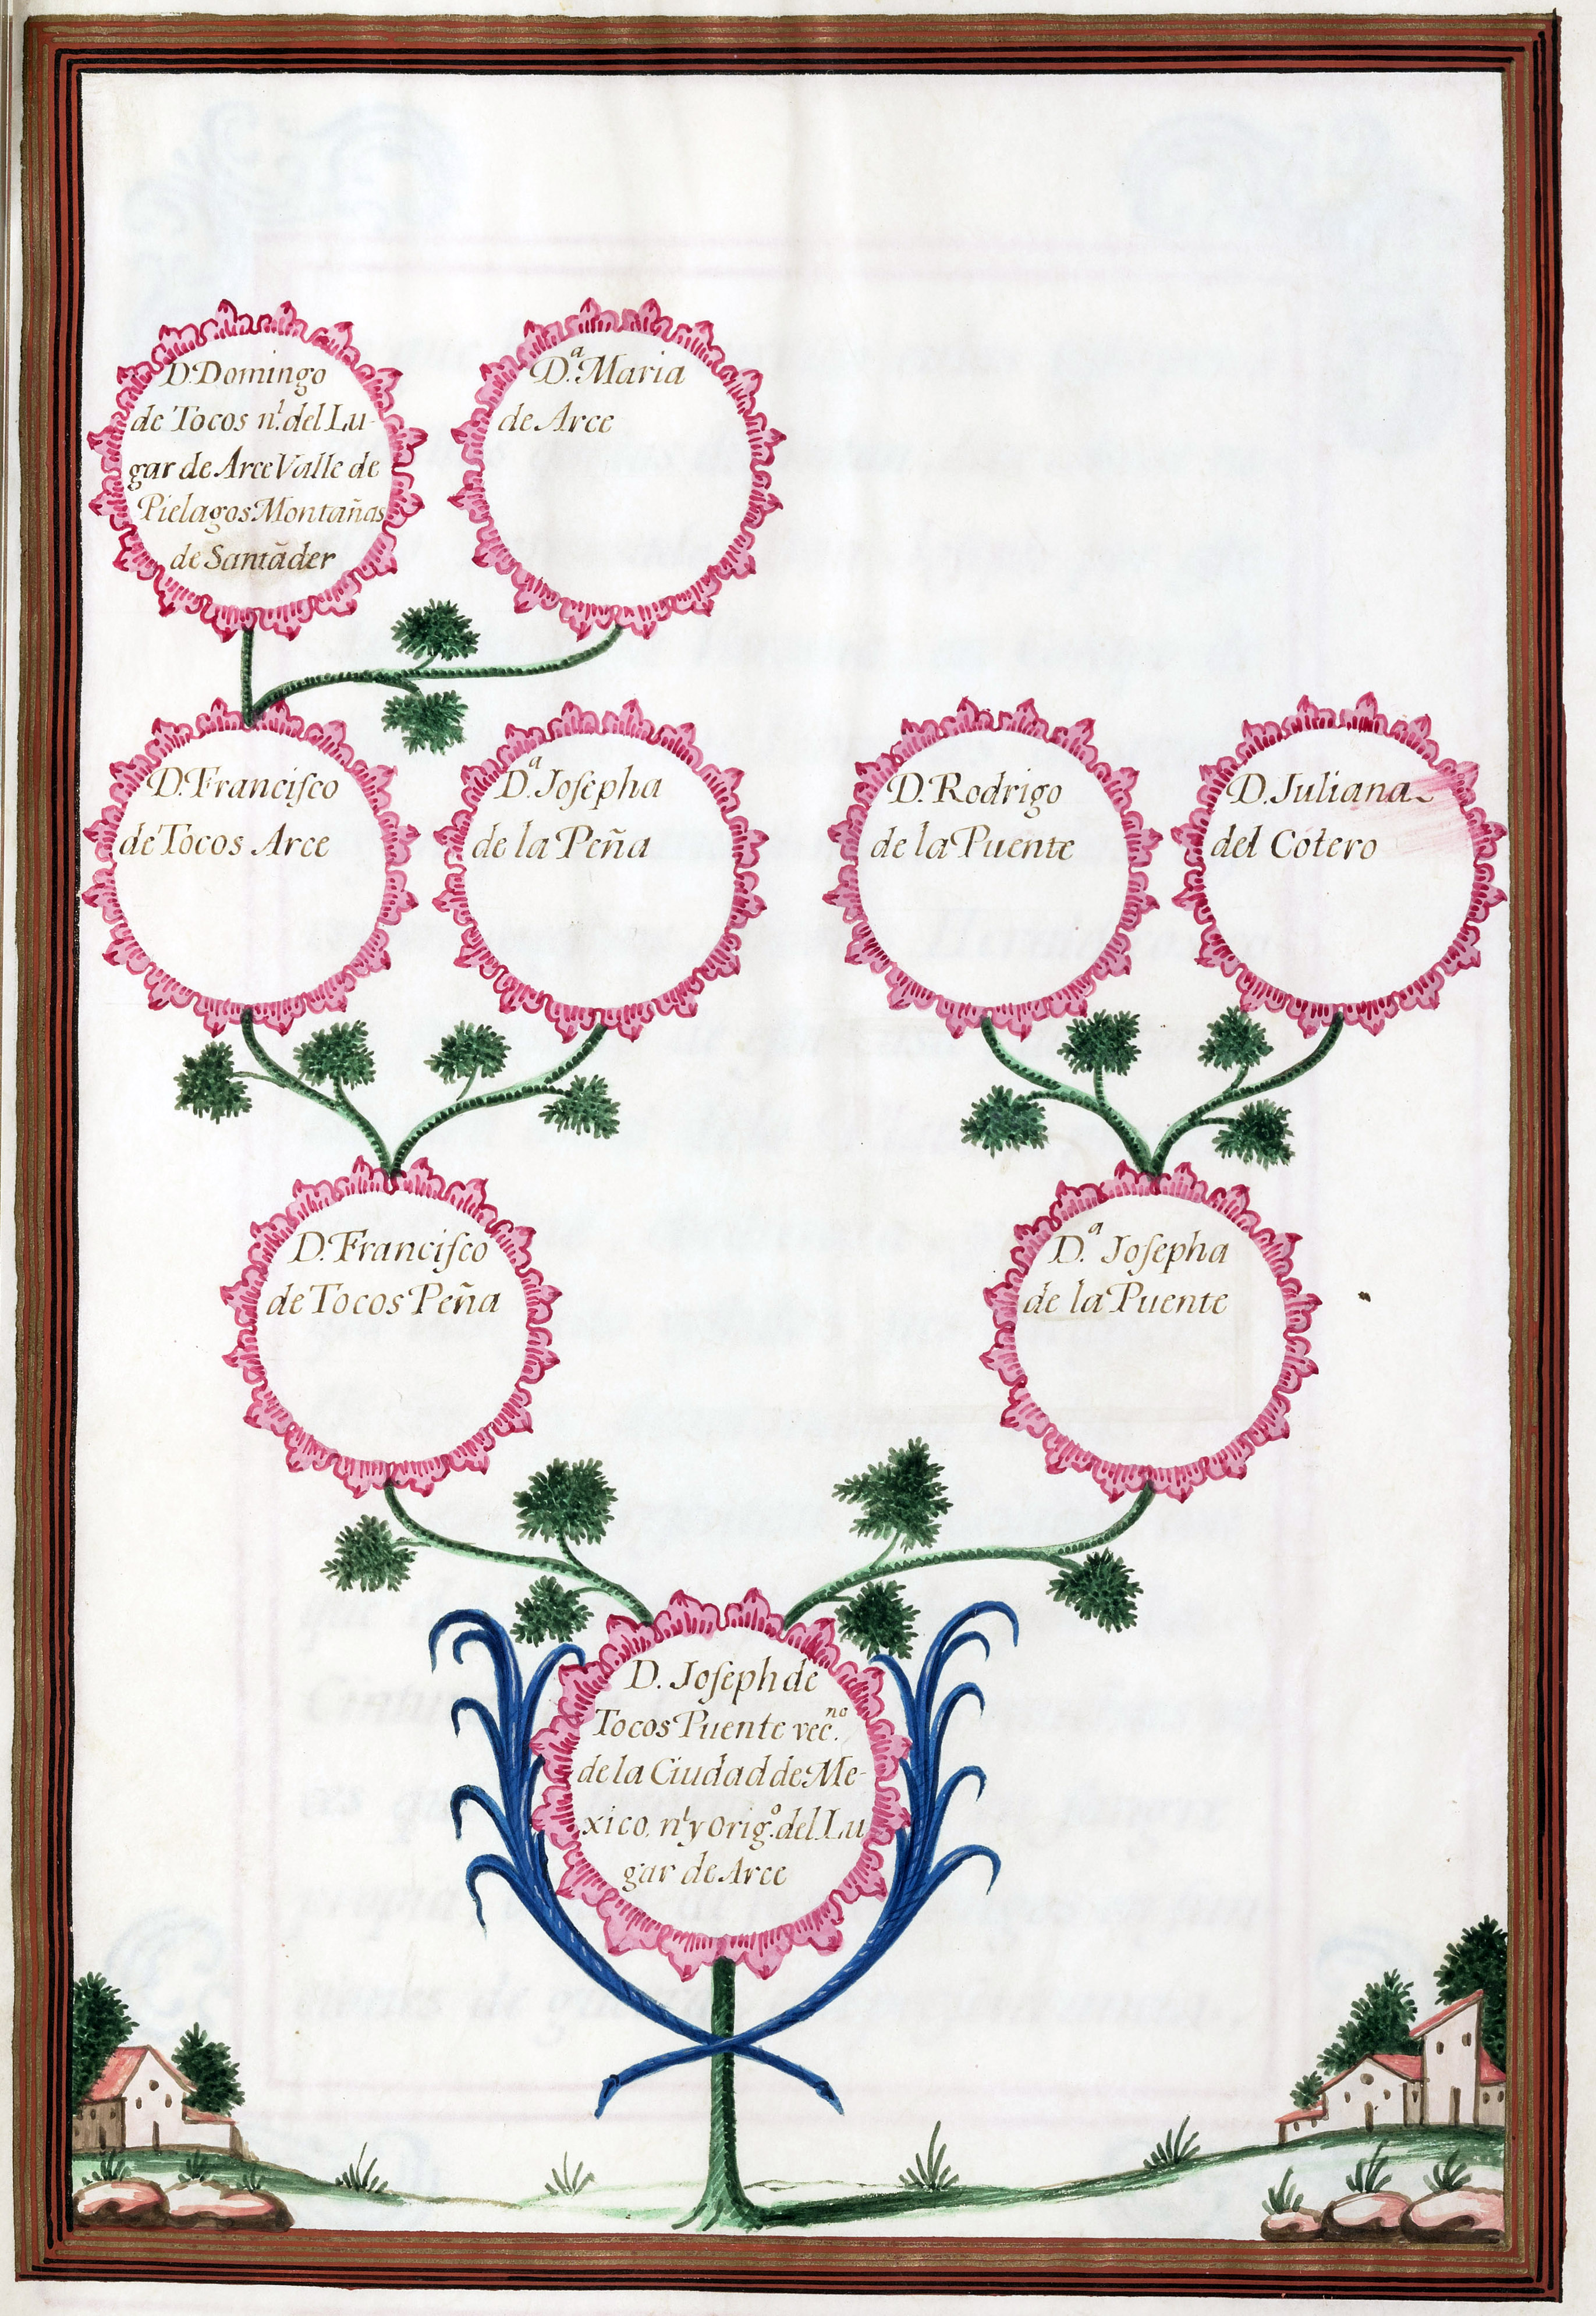 D. Domingo
de Tocos n.l del Lu-
gar de Arce Valle de
Pielagos Montañas
de Santãder
D.a Maria
de Arce
D. Franciſco
de Tocos Arce
D.a Joſepha
de la Peña
D. Rodrigo
de la Puente
D. Juliana
del Cotero
D. Franciſco
de Tocos Peña
D.a Joſepha
de la Puente
D. Joſeph de
Tocos Puente vec.no
de la Ciudad de Me-
xico, n.l y orig.o del Lu
gar de Arce